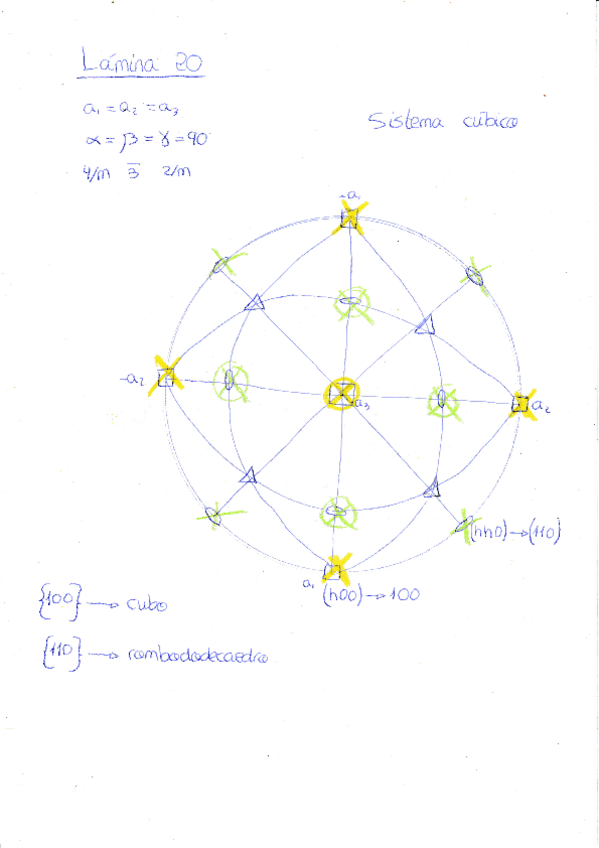 Lámina 20
a₁ = a₂ = a₃
α = β = γ = 90
Sistema cúbico
4/m 3̅ 2/m
-a₁
-a₂
a₃
a₂
(hh0) → (110)
a₁
(h00) → 100
{100} → cubo
{110} → rombododecaedro